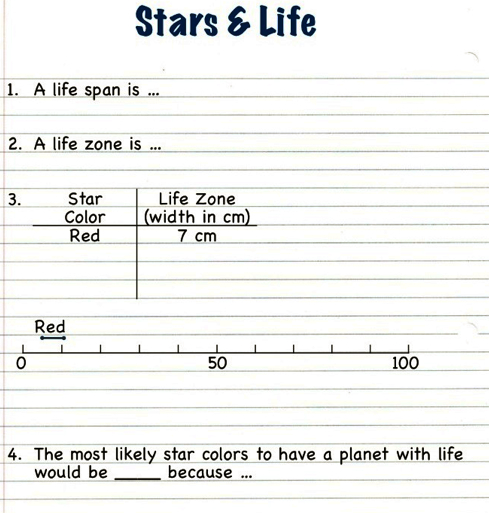 Stars & Life
1. A life span is ...
2. A life zone is ...
3. Star Life Zone
Color (width in cm)
Red 7 cm
Red
0 50 100
4. The most likely star colors to have a planet with life
would be _____ because ...